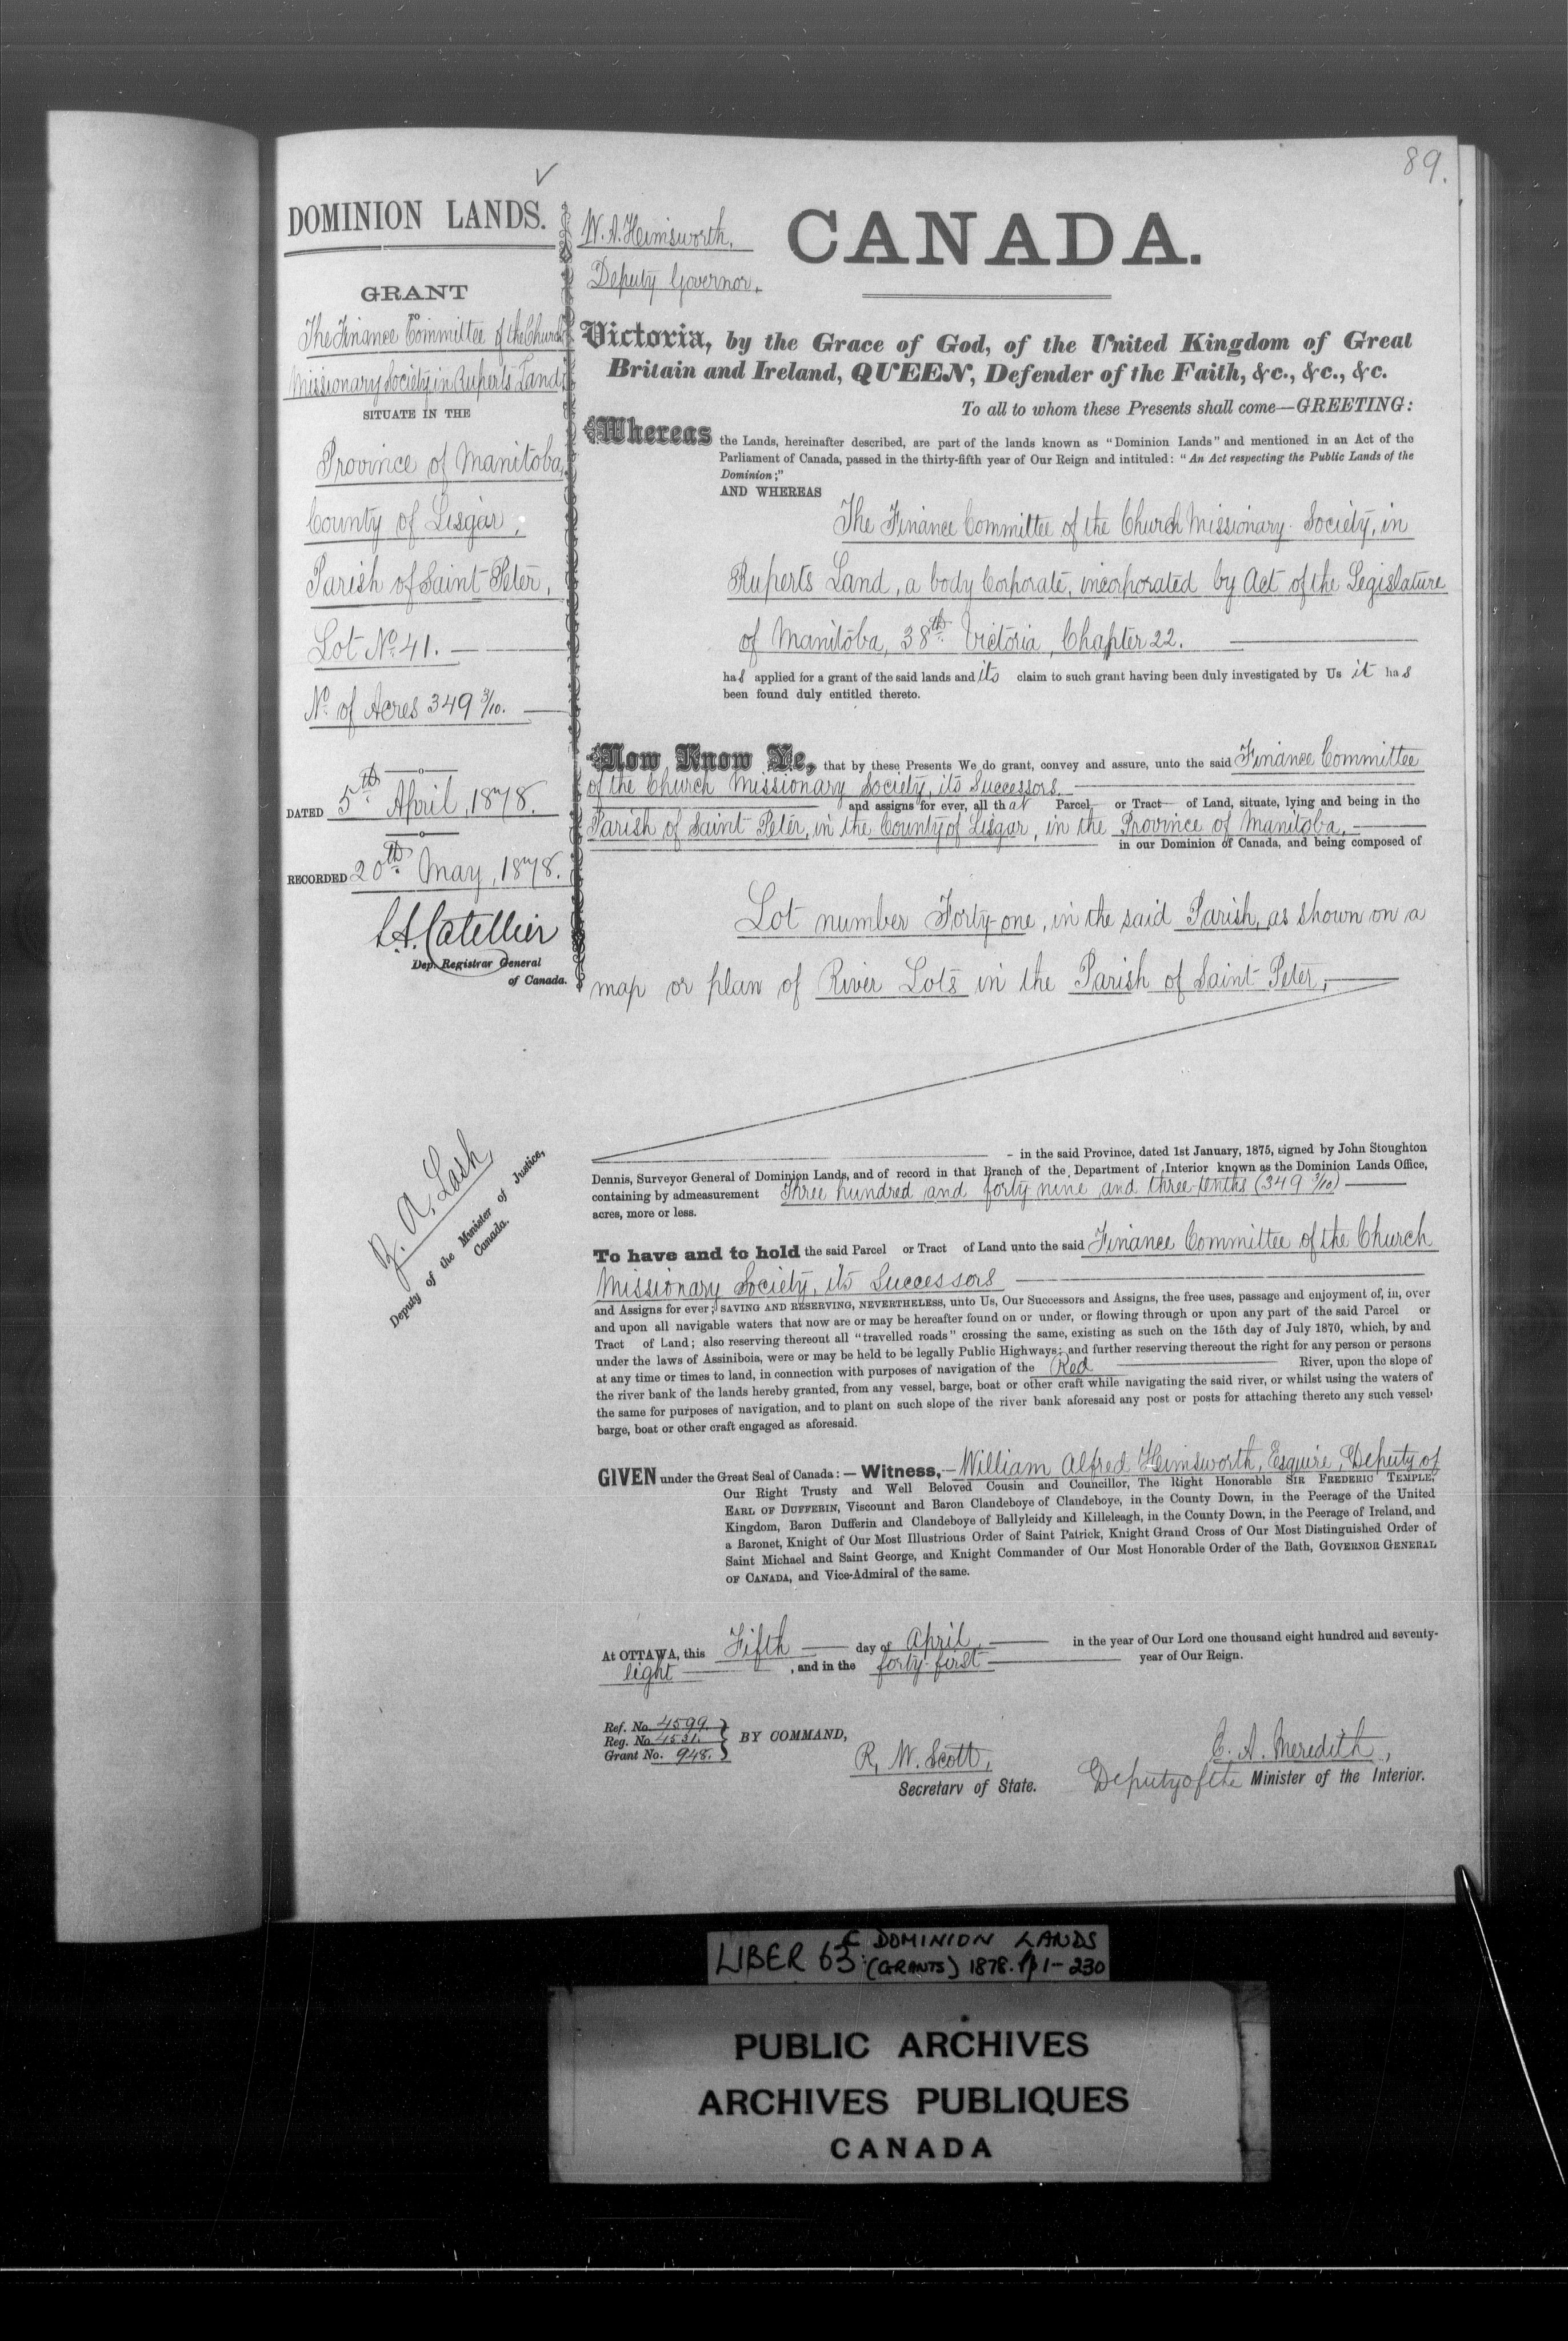 89.
DOMINION LANDS.
GRANT
TO
The Finance Committee of the Church
Missionary Society in Ruperts Land,
SITUATE IN THE
Province of Manitoba,
County of Lisgar,
Parish of Saint Peter,
Lot No. 41.
No. of Acres 349 3/10.
DATED 5th April, 1878.
RECORDED 20th May, 1878.
L.A. Catellier
Dep. Registrar General
of Canada.
Z. A. Lash,
Deputy of the Minister of Justice,
Canada.
W. A. Himsworth,
Deputy Governor.
CANADA.
Victoria, by the Grace of God, of the United Kingdom of Great
Britain and Ireland, QUEEN, Defender of the Faith, &c., &c., &c.
To all to whom these Presents shall come—GREETING:
Whereas the Lands, hereinafter described, are part of the lands known as "Dominion Lands" and mentioned in an Act of the
Parliament of Canada, passed in the thirty-fifth year of Our Reign and intituled: "An Act respecting the Public Lands of the
Dominion;"
AND WHEREAS
The Finance Committee of the Church Missionary Society, in
Ruperts Land, a body Corporate, incorporated by Act of the Legislature
of Manitoba, 38th Victoria, Chapter 22.
has applied for a grant of the said lands and its claim to such grant having been duly investigated by Us it has
been found duly entitled thereto.
Now Know Ye, that by these Presents We do grant, convey and assure, unto the said Finance Committee
of the Church Missionary Society, its Successors
and assigns for ever, all that Parcel or Tract of Land, situate, lying and being in the
Parish of Saint Peter, in the County of Lisgar, in the Province of Manitoba,
in our Dominion of Canada, and being composed of
Lot number Forty-one, in the said Parish, as shown on a
map or plan of River Lots in the Parish of Saint Peter,
in the said Province, dated 1st January, 1875, signed by John Stoughton
Dennis, Surveyor General of Dominion Lands, and of record in that Branch of the Department of Interior known as the Dominion Lands Office,
containing by admeasurement Three hundred and forty nine and three tenths (349 3/10)
acres, more or less.
To have and to hold the said Parcel or Tract of Land unto the said Finance Committee of the Church
Missionary Society, its Successors
and Assigns for ever; SAVING AND RESERVING, NEVERTHELESS, unto Us, Our Successors and Assigns, the free uses, passage and enjoyment of, in, over
and upon all navigable waters that now are or may be hereafter found on or under, or flowing through or upon any part of the said Parcel or
Tract of Land; also reserving thereout all "travelled roads" crossing the same, existing as such on the 15th day of July 1870, which, by and
under the laws of Assiniboia, were or may be held to be legally Public Highways; and further reserving thereout the right for any person or persons
at any time or times to land, in connection with purposes of navigation of the Red River, upon the slope of
the river bank of the lands hereby granted, from any vessel, barge, boat or other craft while navigating the said river, or whilst using the waters of
the same for purposes of navigation, and to plant on such slope of the river bank aforesaid any post or posts for attaching thereto any such vessel,
barge, boat or other craft engaged as aforesaid.
GIVEN under the Great Seal of Canada:—Witness,—William Alfred Himsworth, Esquire, Deputy of
Our Right Trusty and Well Beloved Cousin and Councillor, The Right Honorable SIR FREDERIC TEMPLE,
EARL OF DUFFERIN, Viscount and Baron Clandeboye of Clandeboye, in the County Down, in the Peerage of the United
Kingdom, Baron Dufferin and Clandeboye of Ballyleidy and Killeleagh, in the County Down, in the Peerage of Ireland, and
a Baronet, Knight of Our Most Illustrious Order of Saint Patrick, Knight Grand Cross of Our Most Distinguished Order of
Saint Michael and Saint George, and Knight Commander of Our Most Honorable Order of the Bath, GOVERNOR GENERAL
OF CANADA, and Vice-Admiral of the same.
At OTTAWA, this Fifth day of April, in the year of Our Lord one thousand eight hundred and seventy-
eight, and in the forty-first year of Our Reign.
Ref. No. 4599.
Reg. No. 4531.
Grant No. 948.
BY COMMAND,
R. W. Scott,
Secretary of State.
E. A. Meredith,
Deputy of the Minister of the Interior.
LIBER 63C DOMINION LANDS
(GRANTS) 1878. pp 1-230
PUBLIC ARCHIVES
ARCHIVES PUBLIQUES
CANADA